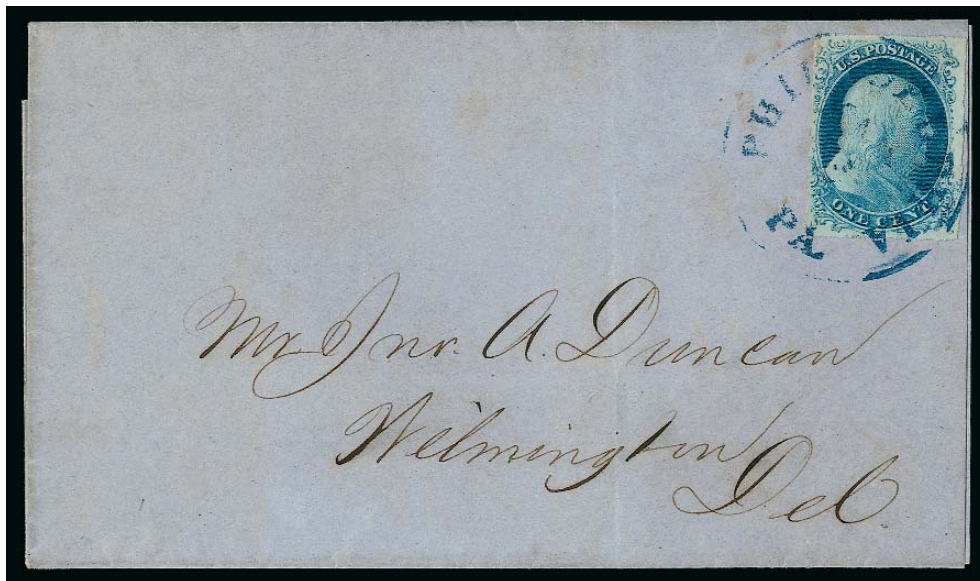 U.S. POSTAGE
ONE CENT
PHIL
PA
Mr. Jnr. A. Duncan
Wilmington
Del